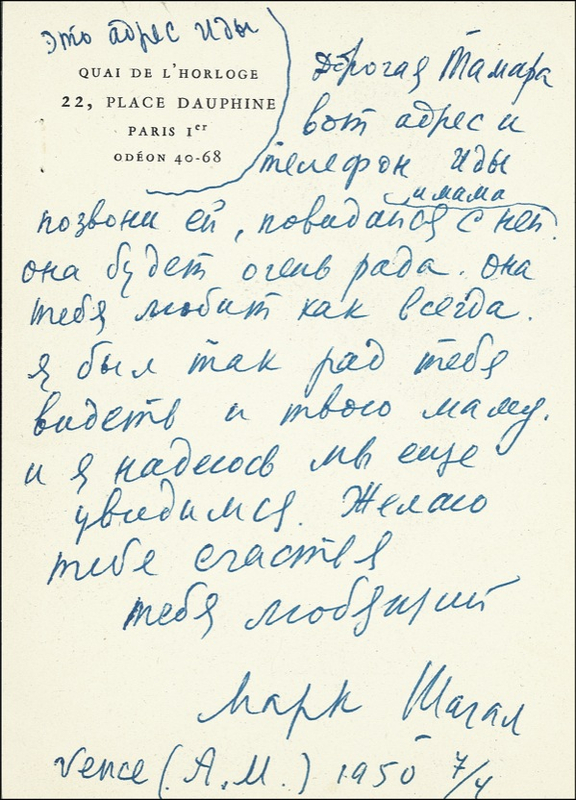 это адрес Иды
QUAI DE L'HORLOGE
22, PLACE DAUPHINE
PARIS 1er
ODÉON 40-68
Дорогая Тамара
вот адрес и
телефон Иды
и мама
позвони ей, повидайся с ней.
она будет очень рада. она
тебя любит как всегда.
я был так рад тебя
видеть и твою маму.
и я надеюсь мы еще
увидимся. Желаю
тебе счастья
тебя любящий
Марк Шагал
Vence (A.M.) 1950 7/4